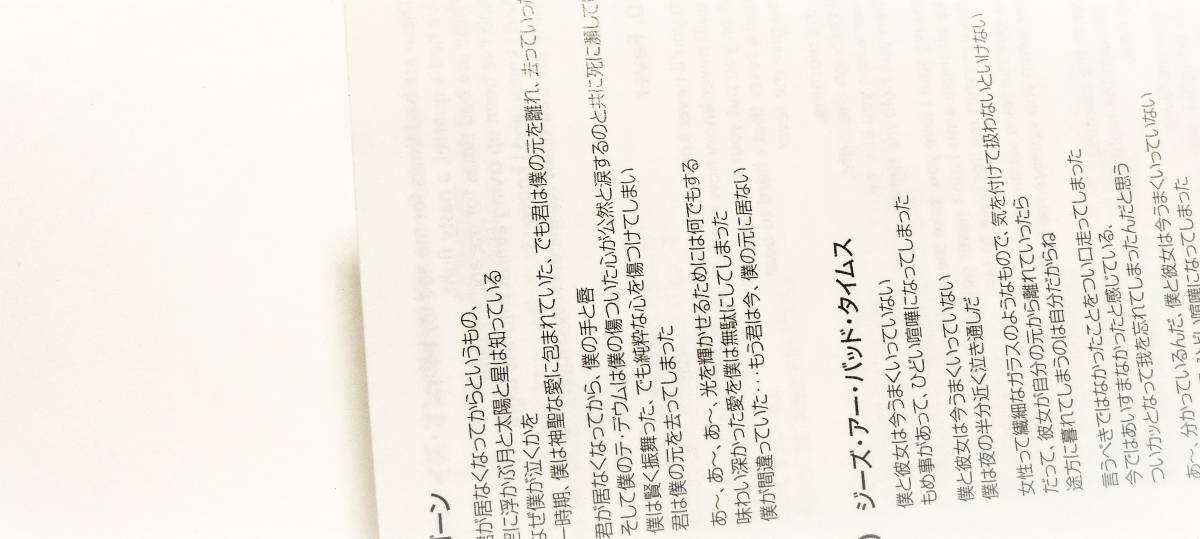 ゴーン
君が居なくなってからというもの、
空に浮かぶ月と太陽と星は知っている
なぜ僕が泣くかを
一時期、僕は神聖な愛に包まれていた、でも君は僕の元を離れ、去っていった
君が居なくなってから、僕の手と唇
そして僕のテ・デウムは僕の傷ついた心が公然と涙するのと共に死に瀕して
僕は賢く振舞った、でも純粋な心を傷つけてしまい
君は僕の元を去ってしまった
あ〜、あ〜、あ〜、光を輝かせるためには何でもする
味わい深かった愛を僕は無駄にしてしまった
僕が間違っていた・・・もう君は今、僕の元に居ない
ジーズ・アー・バッド・タイムス
僕と彼女は今うまくいっていない
もめ事があって、ひどい喧嘩になってしまった
僕と彼女は今うまくいっていない
僕は夜の半分近く泣き通しだ
女性って繊細なガラスのようなもので、気を付けて扱わないといけない
だって、彼女が自分の元から離れていったら
途方に暮れてしまうのは自分だからね
言うべきではなかったことをつい口走ってしまった
今ではあいすまなかったと感じている、
ついカッとなって我を忘れてしまったんだと思う
あ〜、分かっているんだ、僕と彼女は今うまくいっていない
喧嘩になってしまった